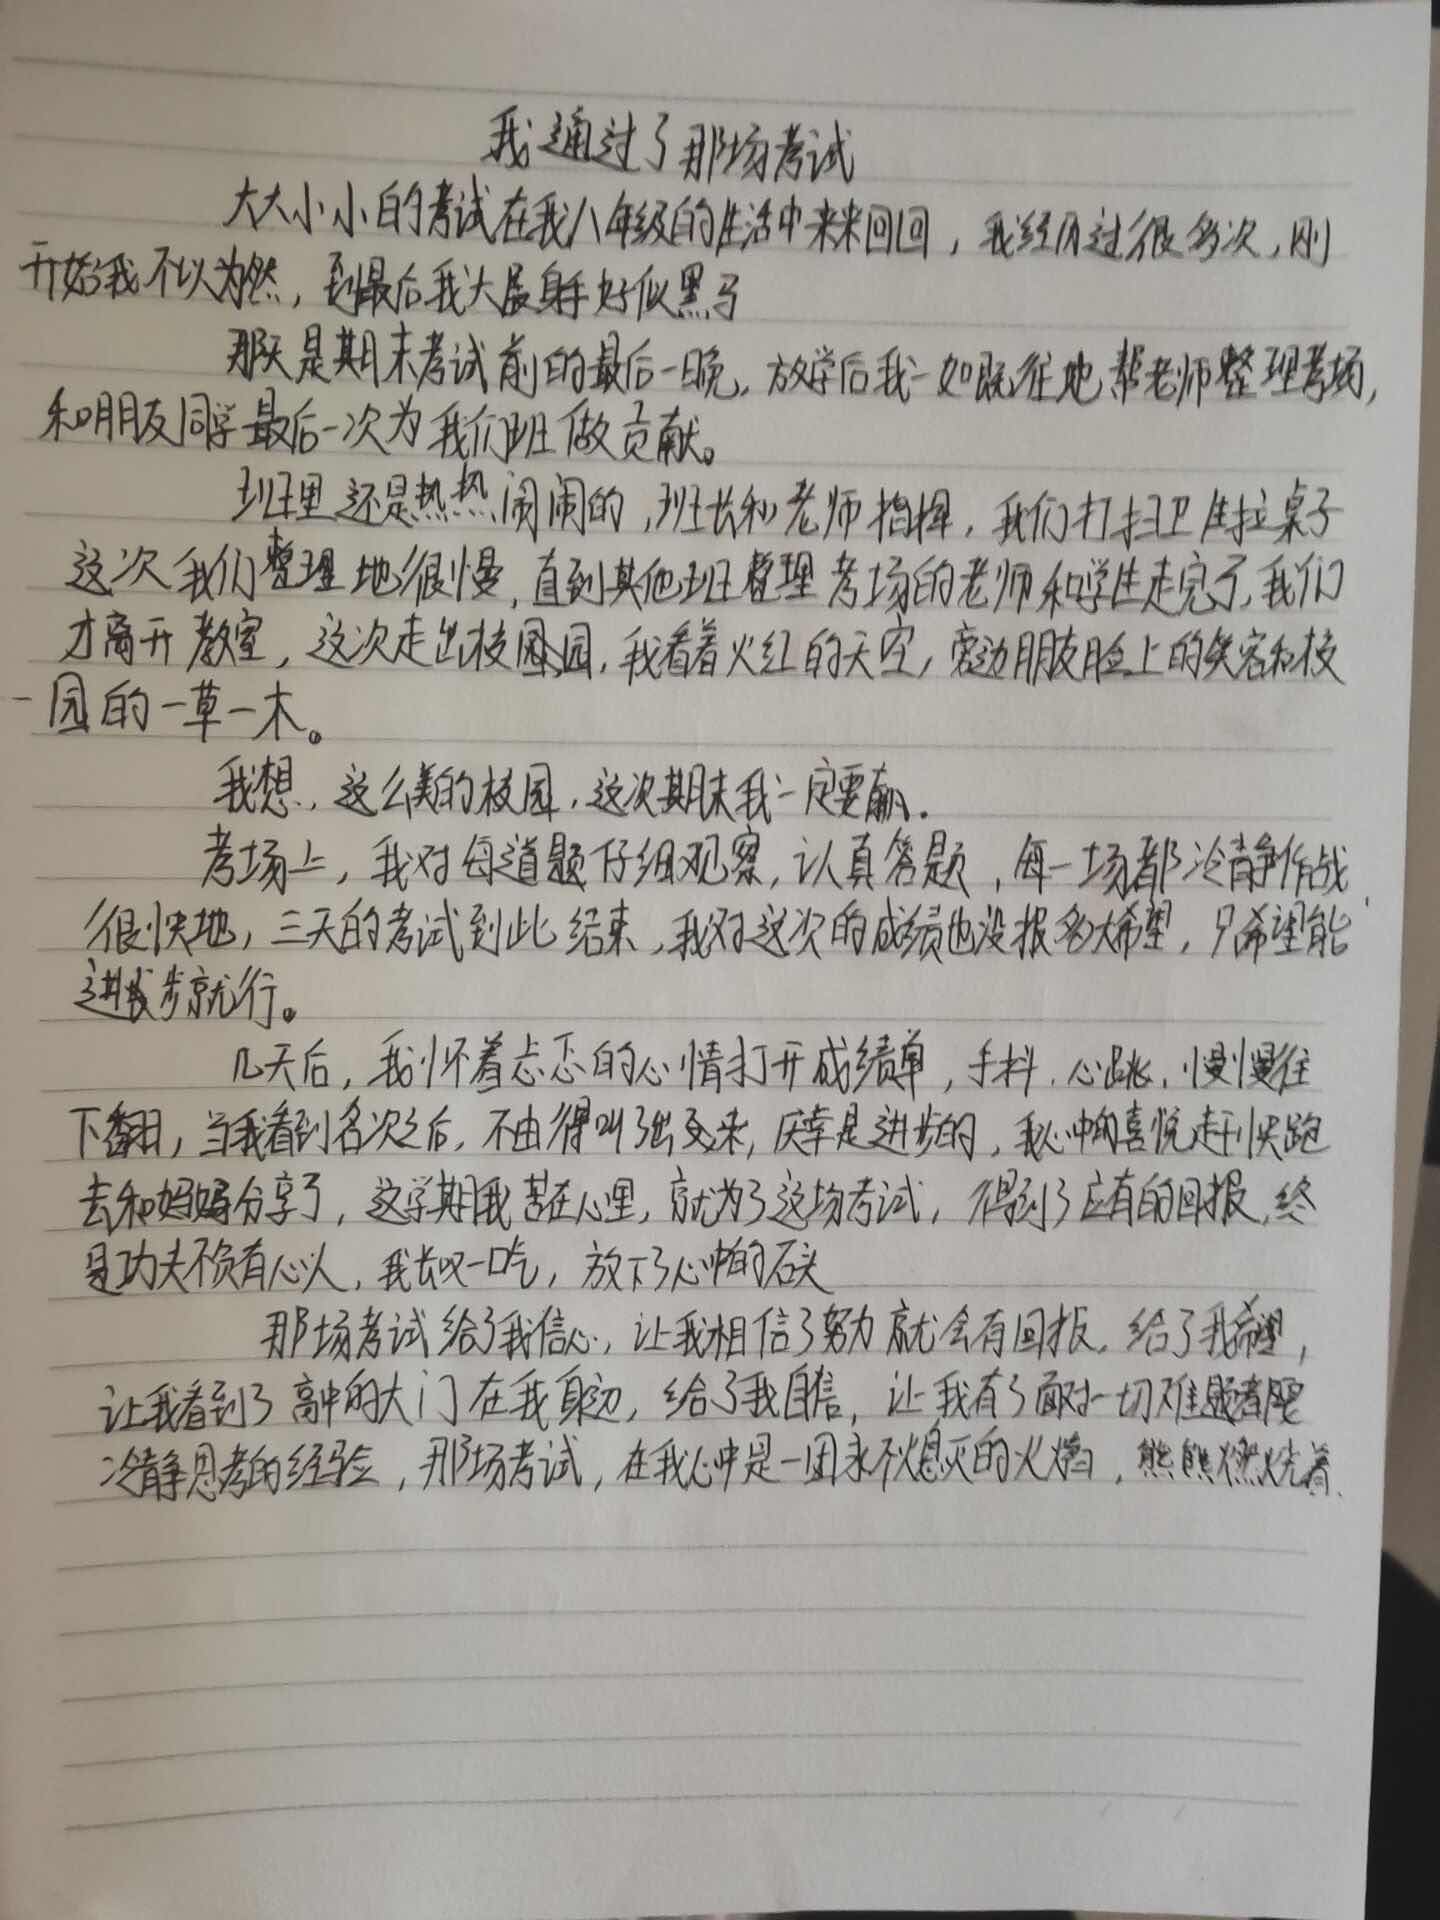 我通过了那场考试
大大小小的考试在我八年级的生活中来来回回，我经历过很多次，刚
开始我不以为然，到最后我大展身手好似黑马
那天是期末考试前的最后一晚，放学后我一如既往地帮老师整理考场，
和朋友同学最后一次为我们班做贡献。
班里还是热热闹闹的，班长和老师指挥，我们打扫卫生拉桌子
这次我们整理地很慢，直到其他班整理考场的老师和学生走完了，我们
才离开教室，这次走出校园，我看着火红的天空，旁边朋友脸上的笑容和校
园的一草一木。
我想，这么美的校园，这次期末我一定要赢。
考场上，我对每道题仔细观察，认真答题，每一场都冷静作战，
很快地，三天的考试到此结束，我对这次的成绩也没报多大希望，只希望能
进步就行。
几天后，我怀着忐忑的心情打开成绩单，手抖，心跳，慢慢往
下翻，当我看到名次之后，不由得叫了出来，庆幸是进步的，我心中的喜悦 快跑
去和妈妈分享了，这学期我苦在心里，就为了这场考试，得到了应有的回报，终
是功夫不负有心人，我长叹一口气，放下了心中的石头
那场考试给了我信心，让我相信了努力就会有回报，给了我希望，
让我看到了高中的大门在我身边，给了我自信，让我有了面对一切难题都
冷静思考的经验，那场考试，在我心中是一团永不熄灭的火焰，熊熊燃烧着